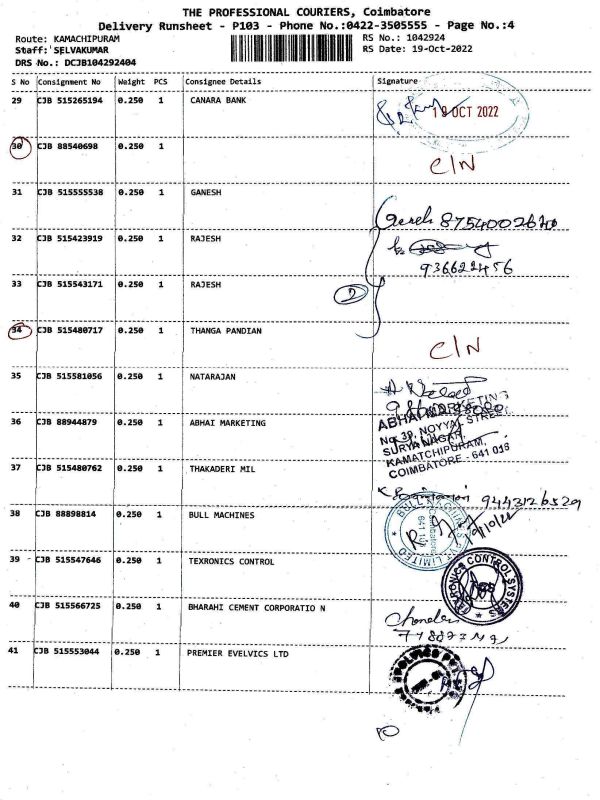 THE PROFESSIONAL COURIERS, Coimbatore
Delivery Runsheet - P103 - Phone No.:0422-3505555 - Page No.:4
Route: KAMACHIPURAM RS No.: 1042924
Staff: SELVAKUMAR RS Date: 19-Oct-2022
DRS No.: DCJB104292404
S No Consignment No Weight PCS Consignee Details Signature
29 CJB 515265194 0.250 1 CANARA BANK
19 OCT 2022
30 CJB 88540698 0.250 1
C/N
31 CJB 515555538 0.250 1 GANESH
8754002640
32 CJB 515423919 0.250 1 RAJESH
936622456
33 CJB 515543171 0.250 1 RAJESH
2
34 CJB 515480717 0.250 1 THANGA PANDIAN
C/N
35 CJB 515581056 0.250 1 NATARAJAN
36 CJB 88944879 0.250 1 ABHAI MARKETING
ABHAI MARKETING
No. 39, NOYYAL STREET,
SURYA NAGAR,
KAMATCHIPURAM,
COIMBATORE - 641 016
37 CJB 515480762 0.250 1 THAKADERI MIL
9443126529
38 CJB 88898814 0.250 1 BULL MACHINES
BULL MACHINES LIMITED
19/10/22
39 CJB 515547646 0.250 1 TEXRONICS CONTROL
TEXRONICS CONTROL SYSTEMS
40 CJB 515566725 0.250 1 BHARAHI CEMENT CORPORATIO N
41 CJB 515553044 0.250 1 PREMIER EVELVICS LTD